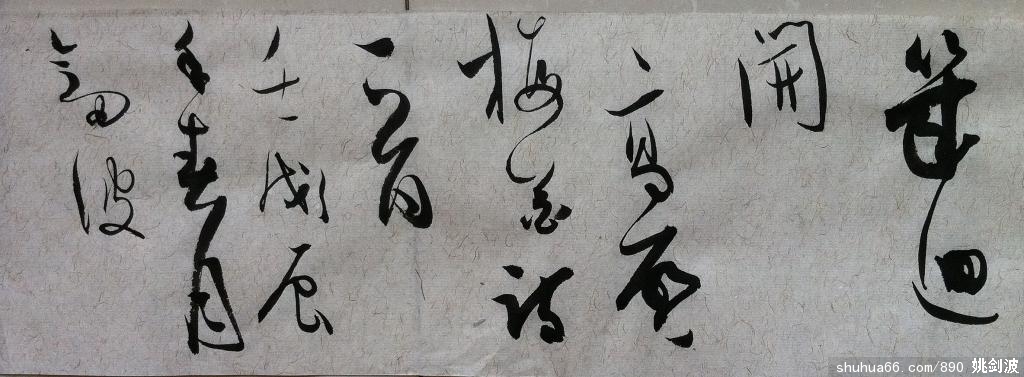 幾迴
開
高啟
梅花詩
一首
壬辰
年春月
劍波
shuhua66.com/890 姚剑波